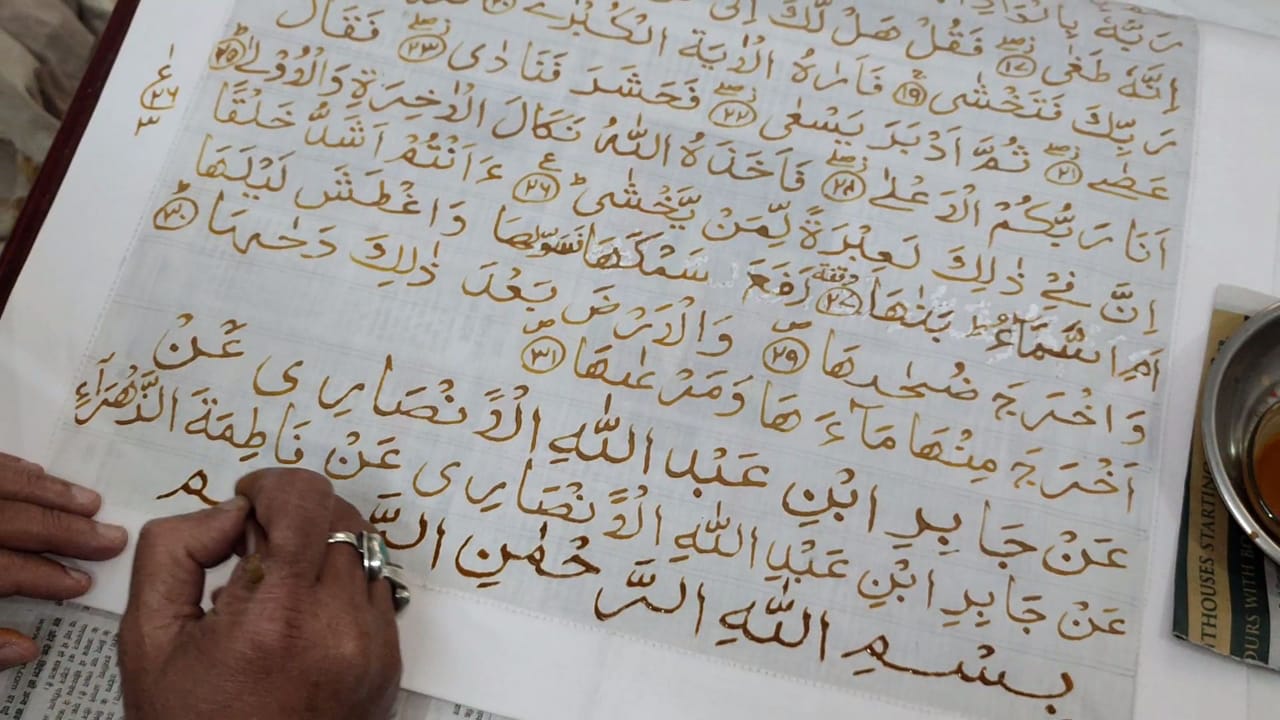 رَبُّهٗ بِالْوَادِ
اِنَّهٗ طَغٰى ۱۷ فَقُلْ هَلْ لَّكَ اِلٰى
رَبِّكَ فَتَخْشٰى ۱۹ فَاَرٰىهُ الْاٰيَةَ الْكُبْرٰى ۲۰
عَصٰى ۲۱ ثُمَّ اَدْبَرَ يَسْعٰى ۲۲ فَحَشَرَ فَنَادٰى ۲۳ فَقَالَ
اَنَا رَبُّكُمُ الْاَعْلٰى ۲۴ فَاَخَذَهُ اللّٰهُ نَكَالَ الْاٰخِرَةِ وَالْاُوْلٰى ۲۵
اِنَّ فِيْ ذٰلِكَ لَعِبْرَةً لِّمَنْ يَّخْشٰى ۲۶ ءَاَنْتُمْ اَشَدُّ خَلْقًا
اَمِ السَّمَآءُ بَنٰهَا ۲۷ رَفَعَ سَمْكَهَا فَسَوّٰىهَا وَاَغْطَشَ لَيْلَهَا
وَاَخْرَجَ ضُحٰىهَا ۲۹ وَالْاَرْضَ بَعْدَ ذٰلِكَ دَحٰىهَا ۳۰
اَخْرَجَ مِنْهَا مَآءَهَا وَمَرْعٰىهَا ۳۱
عَنْ جَابِرِ ابْنِ عَبْدِ اللّٰهِ الْاَنْصَارِى عَنْ
عَنْ جَابِرِ ابْنِ عَبْدِ اللّٰهِ الْاَنْصَارِى عَنْ فَاطِمَةَ الزَّهْرَآءِ
بِسْمِ اللّٰهِ الرَّحْمٰنِ
ع
۲۶
۳
THOUSES STARTING
OURS WITH